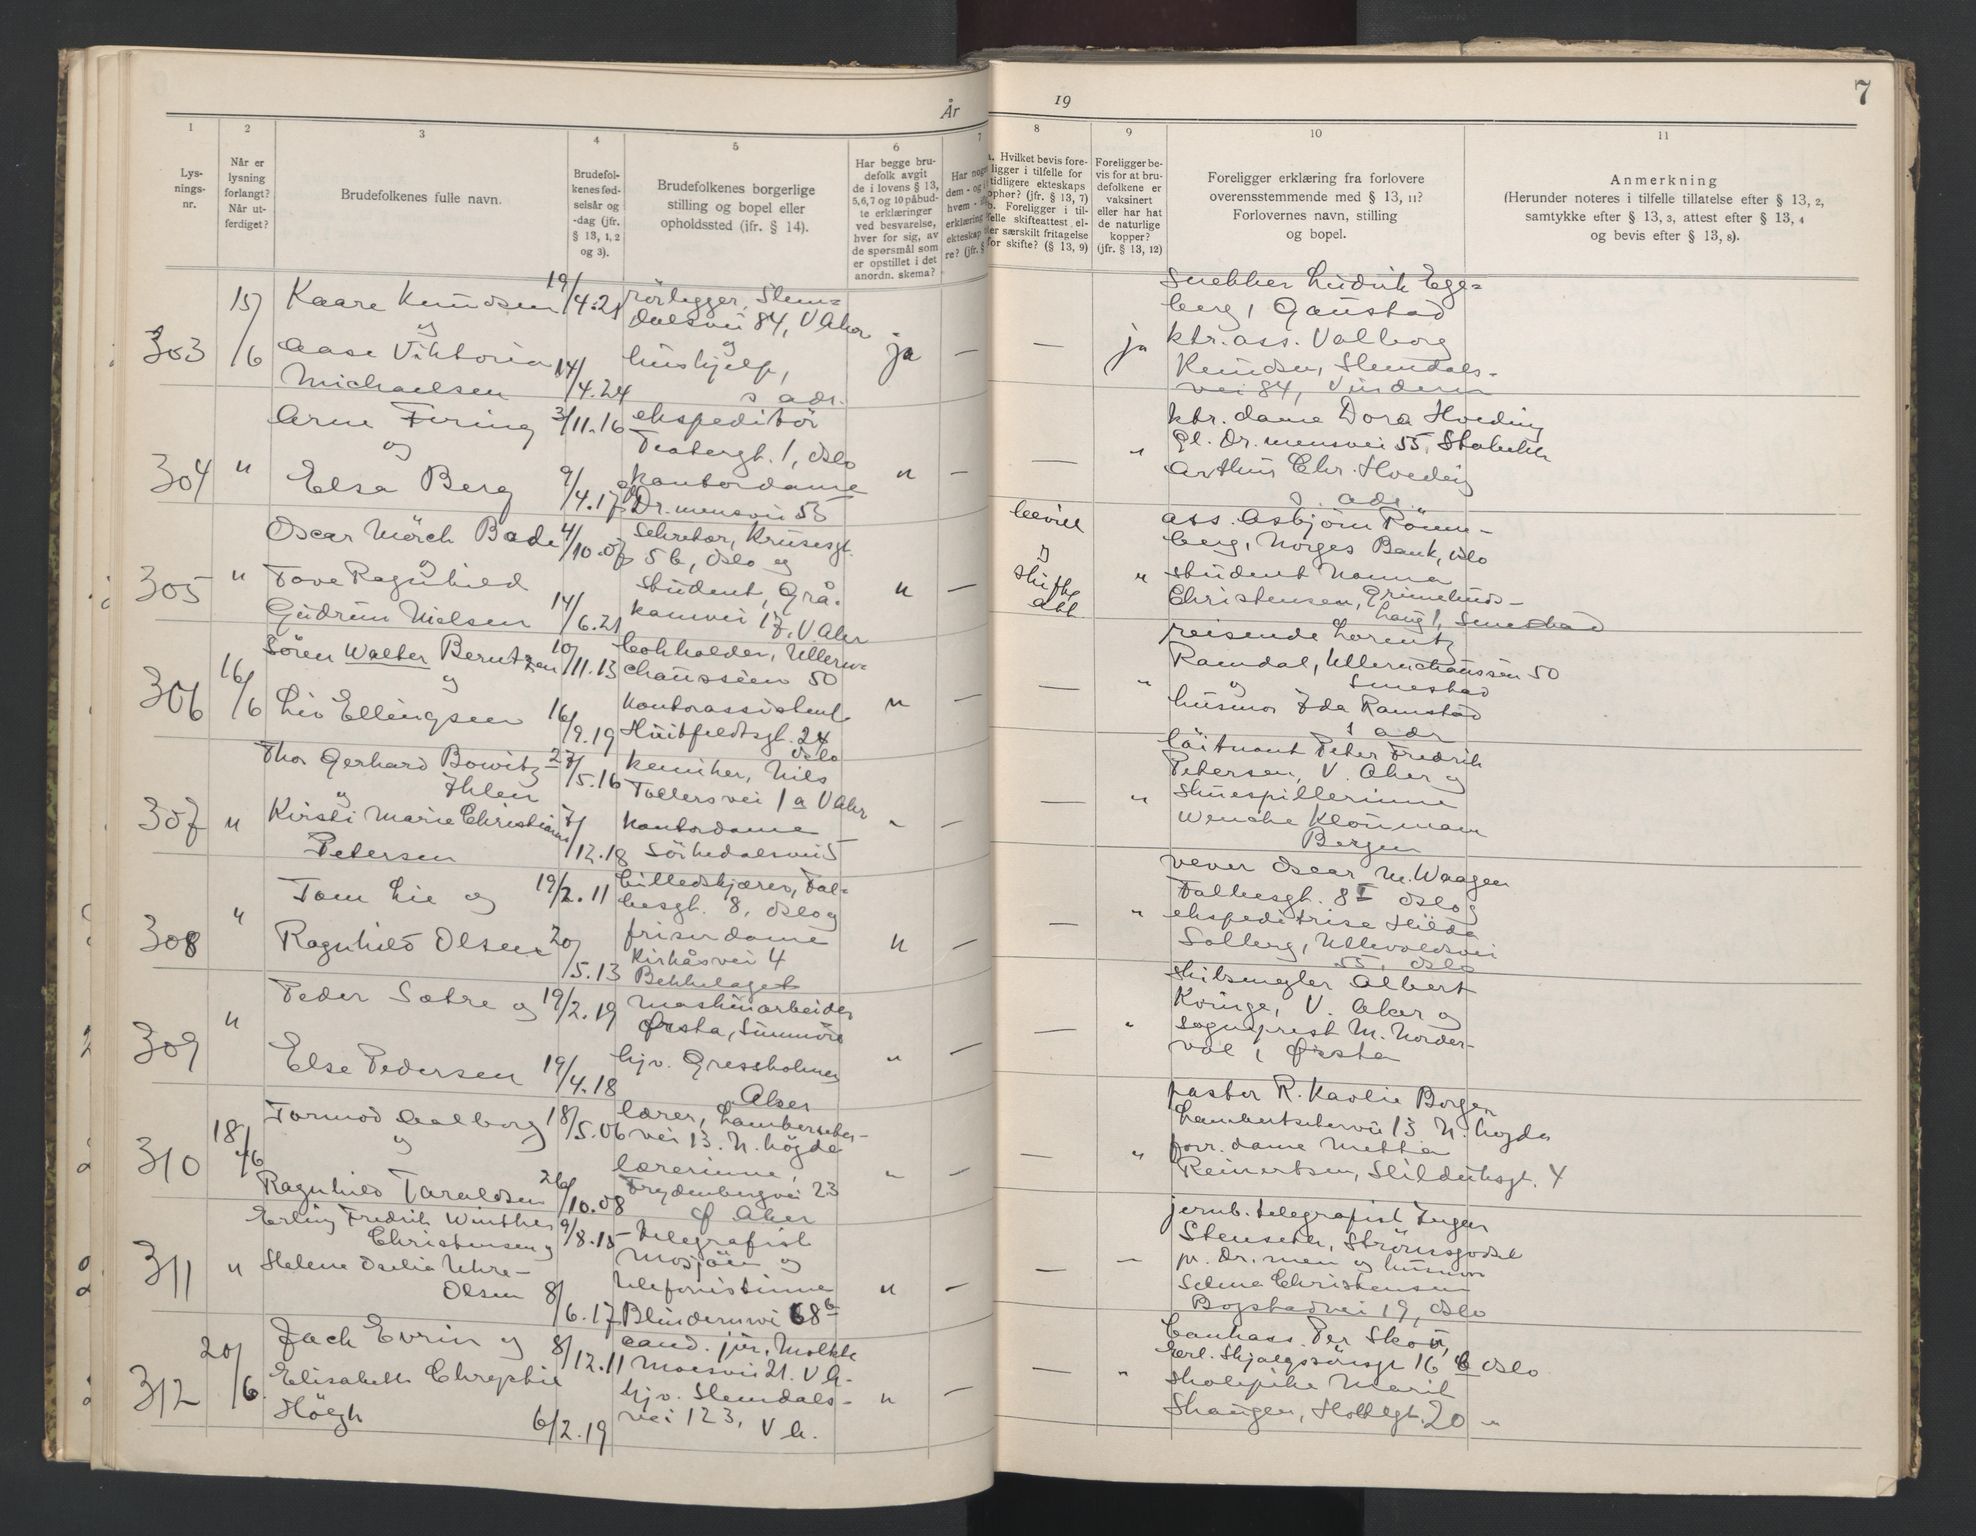 År 19
7
1 2 3 4 5 6 7 8 9 10 11
Lys-
nings-
nr.
Når er
lysning
forlangt?
Når ut-
ferdiget?
Brudefolkenes fulle navn.
Brudefol-
kenes fød-
selsår og
-dag (jfr.
§ 13, 1, 2
og 3).
Brudefolkenes borgerlige
stilling og bopel eller
opholdssted (ifr. § 14).
Har begge bru-
defolk avgit
de i lovens § 13,
5,6,7 og 10 påbud-
te erklæringer
ved besvarelse,
hver for sig, av
de spørsmål som
er opstillet i det
anordn. skema?
Har noge
dem - og i
hvem -
erklæring
ekteskap
re? (jfr. §
a. Hvilket bevis fore-
ligger i tilfelle for
tidligere ekteskaps
ophør? (jfr. § 13, 7)
b. Foreligger i til-
felle skifteattest el-
ler særskilt fritagelse
for skifte? (§ 13, 9)
Foreligger be-
vis for at bru-
defolkene er
vaksinert
eller har hat
de naturlige
kopper?
(jfr. § 13, 12)
Foreligger erklæring fra forlovere
overensstemmende med § 13, 11?
Forlovernes navn, stilling
og bopel.
Anmerkning
(Herunder noteres i tilfelle tillatelse efter § 13, 2,
samtykke efter § 13, 3, attest efter § 13, 4
og bevis efter § 13, 8).
303 15/6
Kaare Knudsen 19/4.21
og
Aase Viktoria
Michaelsen 14/4.24
rørlegger, Slem-
dalsvei 84, V Aker
og
hushjelp,
s adr.
ja — — ja
Snekker Ludvik Ege-
berg, Gaustad
ktr. ass. Valborg
Knudsen, Slemdals-
vei 84, Vinderen
304 "
Arne Firing 3/11.16
og
Elsa Berg 9/4.17
ekspeditör
Teatergt. 1, Oslo
kontordame
Dr.mensvei 55
" — — "
ktr. dame Dora Hveding
Gl. Dr.mensvei 55, Stabekk
Arthur Chr. Hveding
s. adr.
305 "
Oscar Mörch Bade 4/10.07
og
Tove Ragnhild
Gudrun Nielsen 14/6.21
Sekretær, Krusesgt.
5b, Oslo og
student, Grå-
kamvei 17, V. Aker
" —
bevill
og
skifte
att
"
ass. Asbjörn Rönne-
berg, Norges Bank, Oslo
student Nanna
Christensen, Grimelunds-
haug 1, Smestad
306 16/6
Sören Walter Berntzen 10/11.13
og
Liv Ellingsen 16/9.19
bokholder, Ullern-
chausséen 50
kontorassistent
Huitfeldtsgt. 24
Oslo
" — "
reisende Lorentz
Ramdal, Ullernchausséen 50
og Smestad
husmor Ida Ramstad
s adr
307 "
Thor Gerhard Bowitz 27/5.16
Ihlen
og
Kirsti Marie Christiane 7/12.18
Petersen
kemiker, Nils
Tollersvei 1 a V Aker
kontordame
Sörkedalsvei 5
" — — "
löitnant Peter Fredrik
Petersen, V. Aker og
Skuespillerinne
Wenche Klouman
Bergen
308 "
Tom Lie og 19/2.11
Ragnhild Olsen 20/5.13
billedskjærer, Fal-
besgt. 8, Oslo og
friser dame
Kirkåsvei 4
Bekkelaget
" — — "
vever Oscar M. Waagen
Falbesgt. 8 I Oslo og
ekspeditrise Hilda
Solberg, Ullevoldsvei
55, Oslo
309 "
Peder Sætre og 19/2.19
Else Pedersen 19/4.18
maskinarbeider
Ørsta, Sunnmöre
hjv. Gressholmen
Aker
" — — "
skibsmegler Albert
Kringe, V. Aker og
sogneprest M. Norder-
val, Ørsta
310 18/6
Tormod Aalborg 18/5.06
og
Ragnhild Taraldsen 26/10.08
lærer, Lambertseter-
vei 13. N. högda
lærerinne,
Frydenbergvei 23
Ø Aker
" — — "
pastor R. Kavlie Borgen
Lambertsetervei 13 N. högda
forr. dame Metha
Reinertsen, Skilduksgt. 4
311 "
Erling Fredrik Winther 9/8.15
Christensen og
Helene Osilia Uhre-
Olsen 8/6.17
telegrafist
Mosjöen og
telefonistinne
Blindernvei 68 b
" — — —
jernb. telegrafist Inger
Stenseth, Strömsgodset
pr. Dr.men og husmor
Selma Christensen
Bogstadvei 19, Oslo
312 20/6.
Jach Evrin og 8/12.11
Elisabeth Chrystie
Höegh 6/2.19
cand. jur, Moltke
Moesvei 21. V A.
hjv. Slemdals-
vei 123, V A.
" — "
bankass. Per Skou,
Erl. Skjalgssönsgt 16 b Oslo
skolepike Marit
Skaugen, Holtegt. 20 "